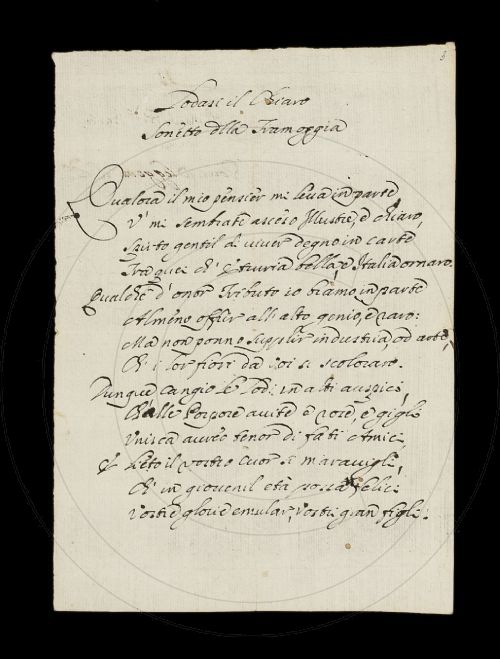 Lodasi il Chiaro
Sonetto della Tramoggia
Qualora il mio pensier mi leva in parte
V' mi sembrate asceso Illustre, e chiaro,
Spirto gentil di viver degno in carte
Tra quei ch' Etruria bella, e Italia ornaro.
Qualche d' onor Tributo io bramo in parte
Almeno offrir all' alto genio, e raro:
Ma non ponno supplir industria od arte,
Ch' i lor fiori da voi si scoloraro.
Dunque cangio le lodi in alti auspici,
Ch' alle Porpore avite e rose, e gigli
Unisca aureo tenor di fati Amici,
E lieto il vostro cuor si maravigli,
Ch' in giovenil età possa felici
Vostre glorie emular, vostri gran figli.